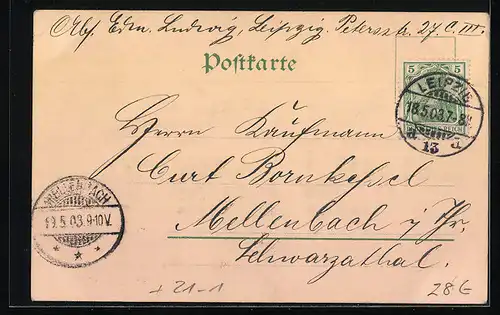 Abs. Edm. Ludwig, Leipzig. Petersstr. 27. C. III.
Postkarte
5 5
LEIPZIG
18.5.03.7-8N
13
REICH
Herrn Kaufmann
Curt Bornkessel
MELLENBACH
19.5.03.9-10V.
Mellenbach i/Th.
Schwarzathal.
+ 21-1
28G